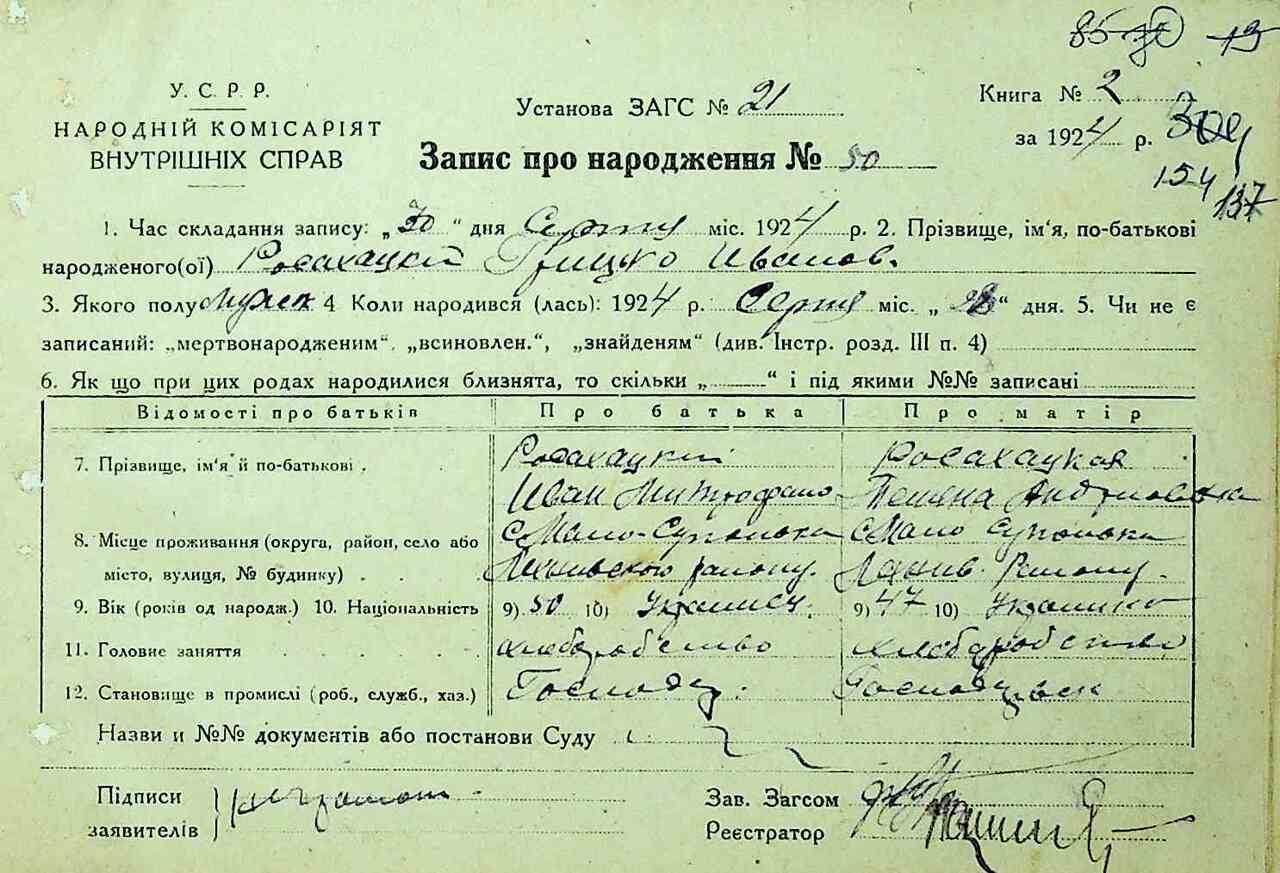 85 13
У. С. Р. Р.
НАРОДНІЙ КОМІСАРІЯТ
ВНУТРІШНІХ СПРАВ
Установа ЗАГС № 21
Книга № 2
за 1924 р.
Запис про народження № 50
154
137
1. Час складання запису: „30“ дня Серпня міс. 1924 р. 2. Прізвище, ім'я, по-батькові
народженого(ої) Росахацкий Грицько Иванов.
3. Якого полу мужск 4 Коли народився (лась): 1924 р. Серпня міс. „28“ дня. 5. Чи не є
записаний: „мертвонародженим“, „всиновлен.“, „знайденям“ (див. Інстр. розд. III п. 4)
6. Як що при цих родах народилися близнята, то скільки „ “ і під якими №№ записані
Відомості про батьків Про батька Про матір
7. Прізвище, ім'я й по-батькові . Росахацкий Росахацкая
Иван Митрофано
8. Місце проживання (округа, район, село або с Мало-Супоивка с Мало Супоивка
місто, вулиця, № будинку) . . . району.
9. Вік (років од народж.) 10. Національність 9) 50 10) Украинец. 9) 47 10) Украинка
11. Головне заняття . . . . . хлеборобство хлеборобство
12. Становище в промислі (роб., служб., хаз.)
Назви и №№ документів або постанови Суду
Підписи
заявителів неграмот
Зав. Загсом
Реєстратор